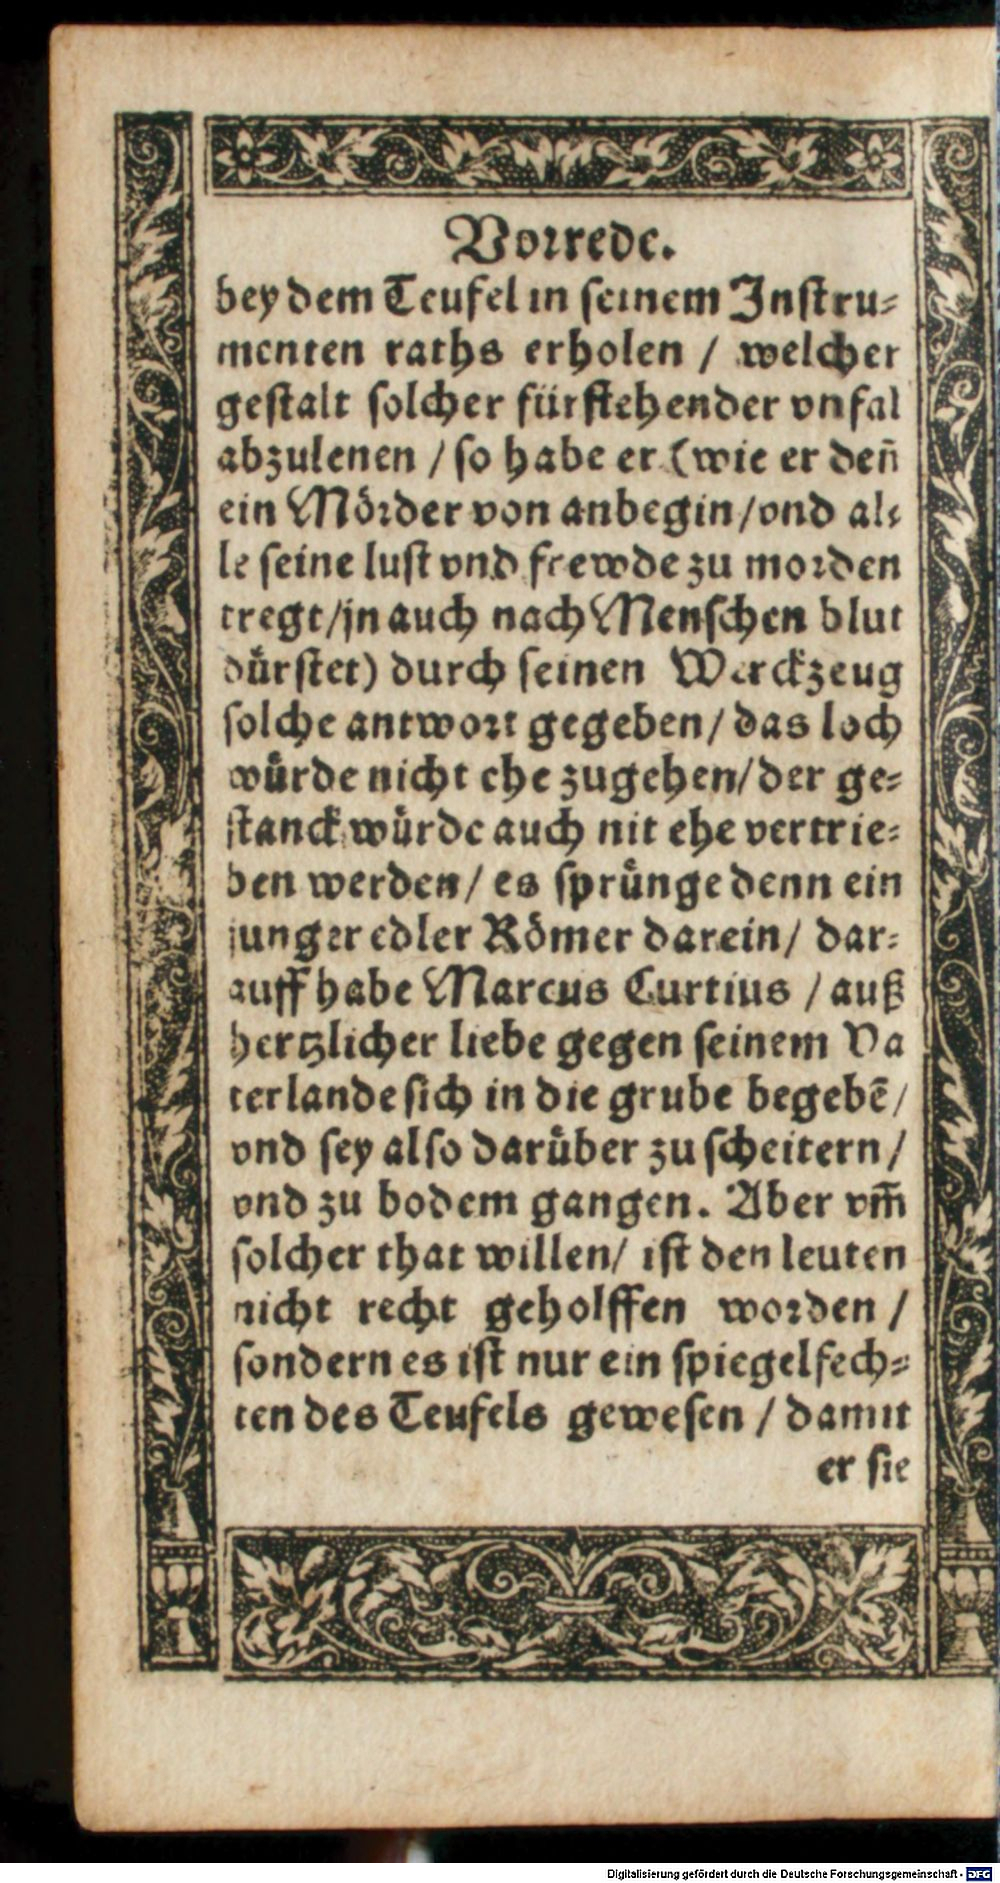 Vorrede.
bey dem Teufel in seinem Instru-
menten raths erholen / welcher
gestalt solcher fürstehender vnfal
abzulenen / so habe er (wie er deñ
ein Mörder von anbegin/vnd al-
le seine lust vnd frewde zu morden
tregt/jn auch nach Menschen blut
dürstet) durch seinen Werckzeug
solche antwort gegeben/ das loch
würde nicht ehe zugehen/der ge-
stanck würde auch nit ehe vertrie-
ben werden/ es sprünge denn ein
junger edler Römer darein/ dar-
auff habe Marcus Curtius / auß
hertzlicher liebe gegen seinem Va
terlande sich in die grube begebē/
vnd sey also darüber zu scheitern/
vnd zu bodem gangen. Aber vm̄
solcher that willen/ ist den leuten
nicht recht geholffen worden /
sondern es ist nur ein spiegelfech-
ten des Teufels gewesen / damit
er sie
Digitalisierung gefördert durch die Deutsche Forschungsgemeinschaft - DFG